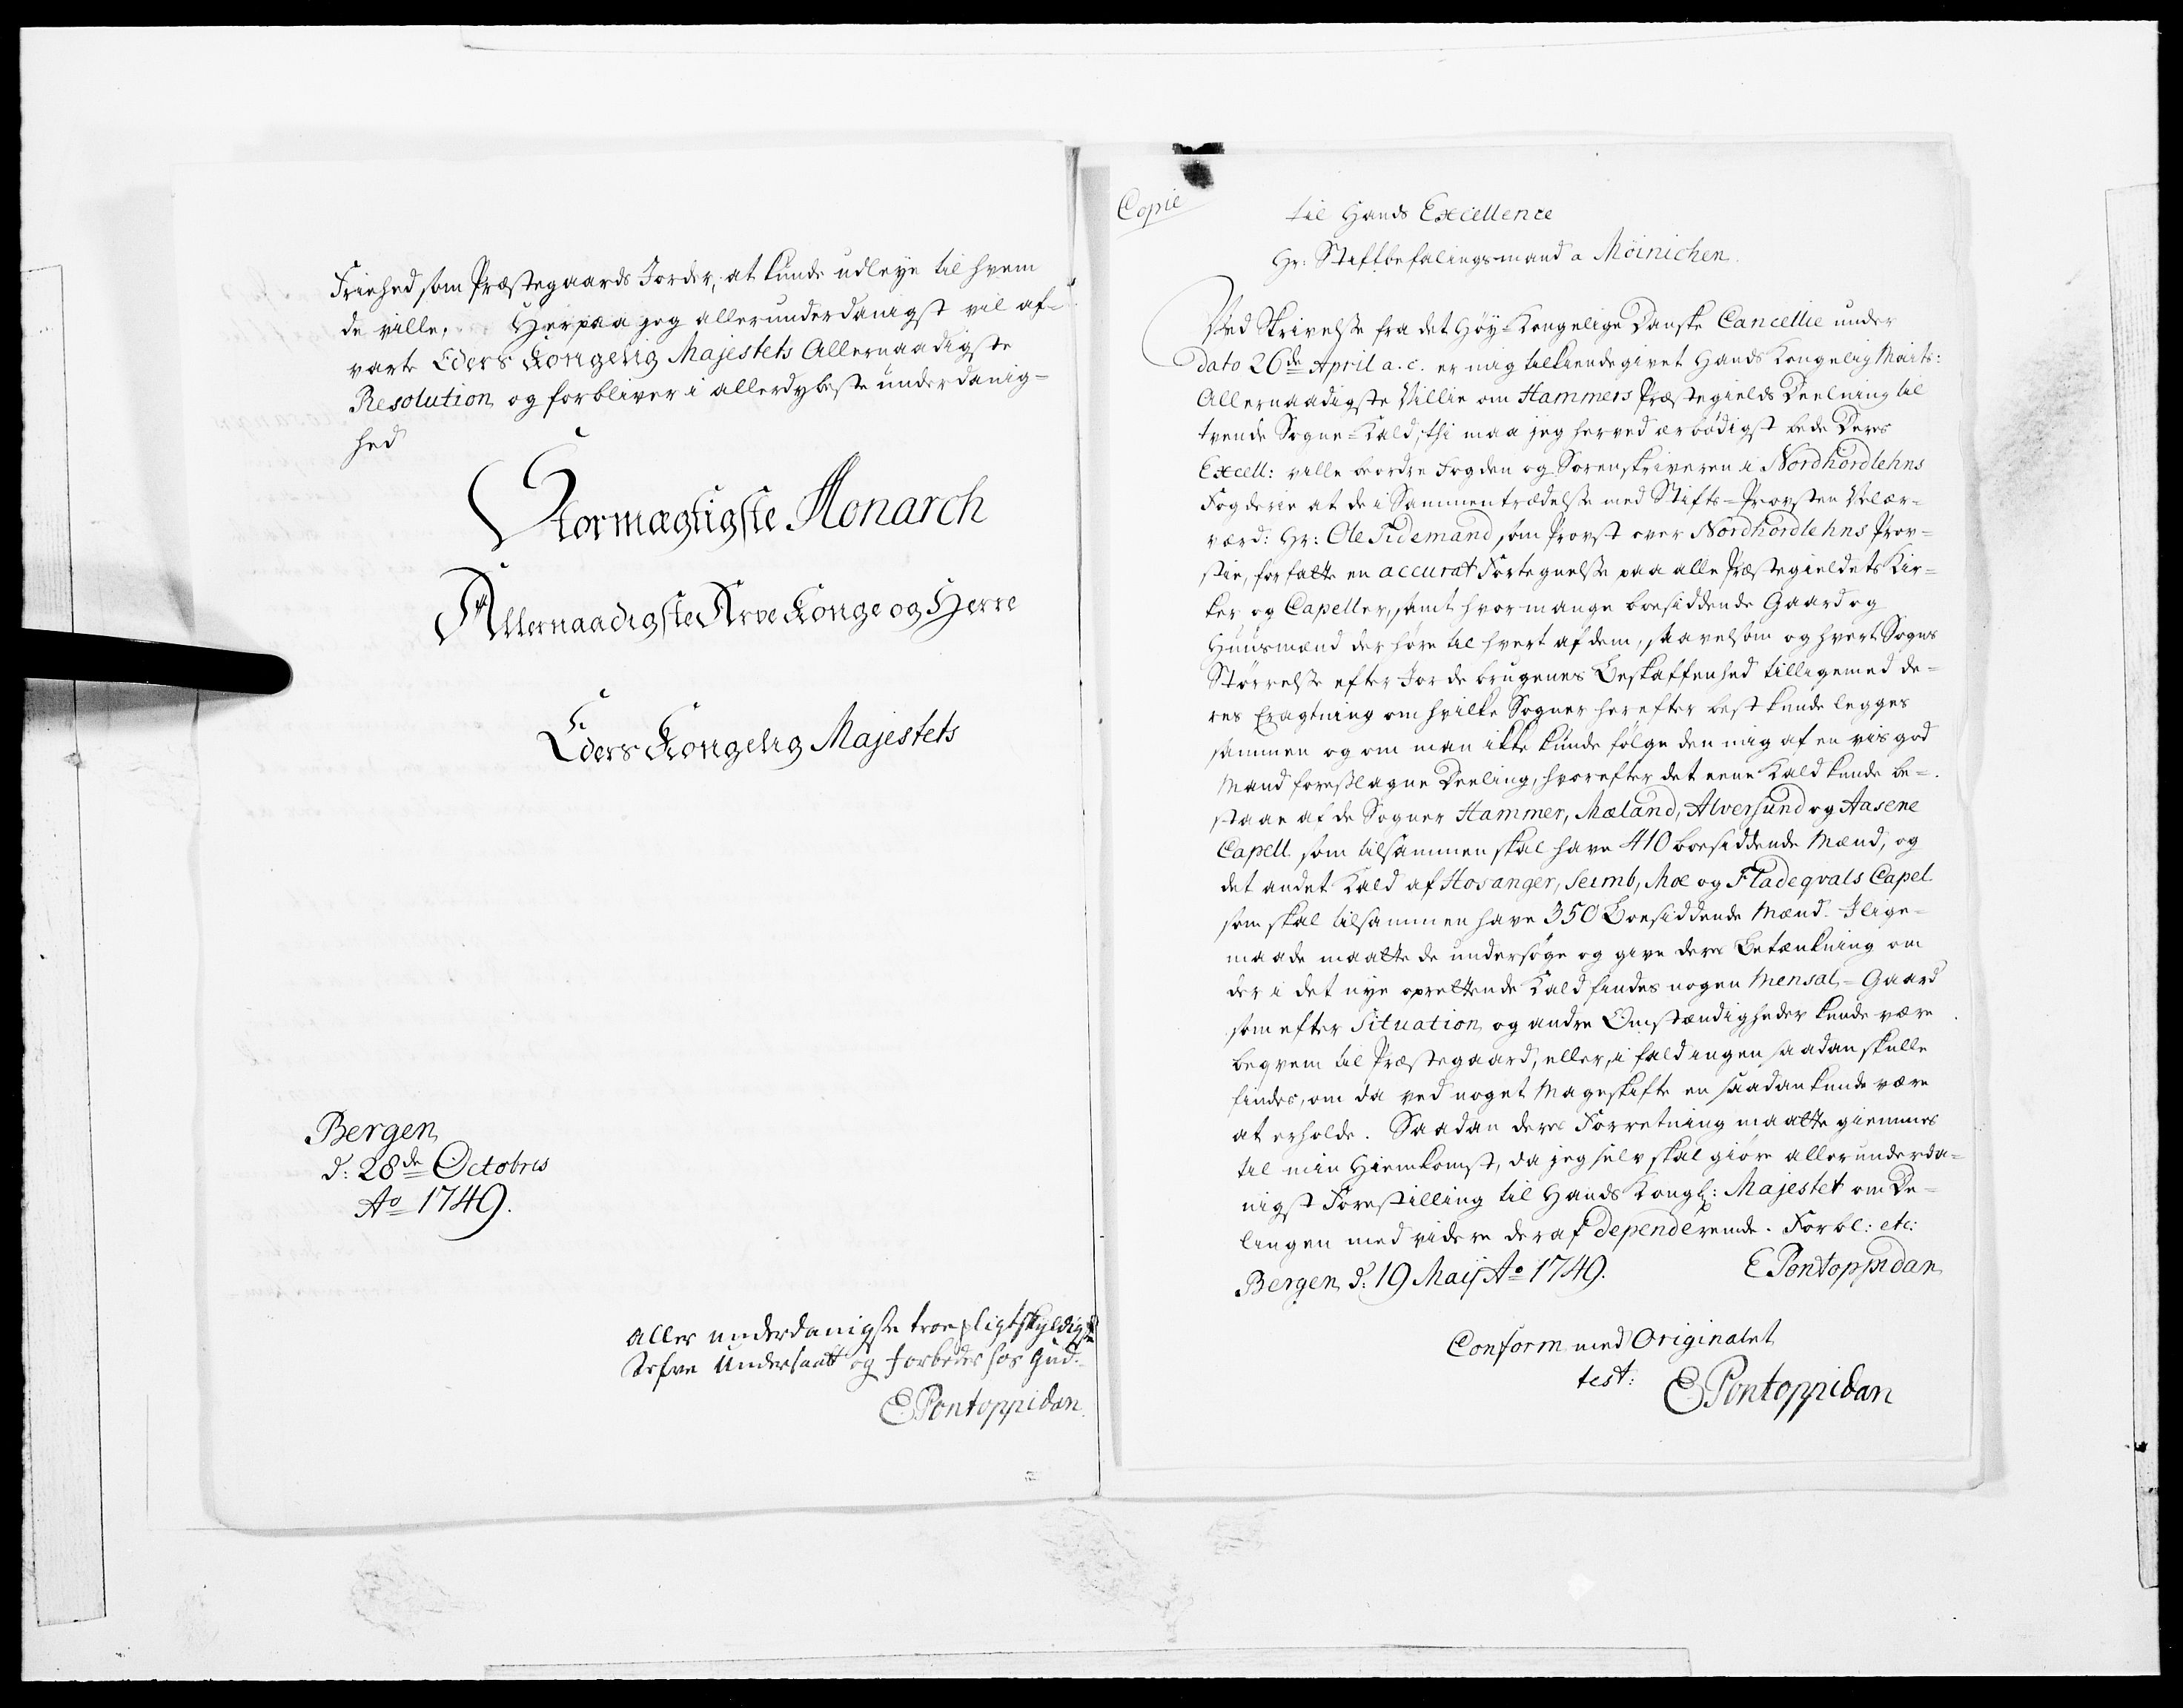 Friehed som Præstegaards Jorder, at kunde udleye til hvem
de ville. Herpaa jeg allerunderdanigst vil af-
varte Eders Kongelig Majestets Allernaadigste
Resolution og forbliver i allerdybeste underdanig-
hed
Stormægtigste Monarch
Allernaadigste Arve Konge og Herre
Eders Kongelig Majestets
Bergen
d: 28de Octobris
Ao 1749.
aller underdanigste troepligtskyldigste
Arfve Undersaatt og forbeder hos Gud.
E Pontoppidan
Copie
til Hands Excellence
Hr: Stiftbefalingsmand a Möinichen
Ved Skrivelse fra det Høy-Kongelige Danske Cancellie under
dato 26de April a. c. er mig tilkiendegivet Hands Kongelig Maits:
Allernaadigste Villie om Hammers Præstegields Deelning til
tvende Sogne-Kald, thi maa jeg herved ærbödigst bede Deres
Excell: ville beordre Fogden og Sorenskriveren i Nordhordlehns
Fogderie at de i Sammentrædelse med Stifts-Provsten Velær-
værd: Hr: Ole Tidemand, som Provst over Nordhordlehns Prov-
stie, forfatte en accurat Fortegnelse paa alle Præstegieldets Kir-
ker og Capeller, samt hvor mange boesiddende Gaard og
Huusmænd der høre til hvert af dem, saavelsom og hvert Sogns
Størrelse efter Jordebrugenes Beskaffenhed tilligemed de-
res Eragtning om hvilke Sogner herefter best kunde legges
sammen og om man ikke kunde følge den mig af en vis god
Mand foreslagne Deeling, hvorefter det eene Kald kunde be-
staae af de Sogner Hammer, Mæland, Alversund og Aasene
Capell som tilsammen skal have 410 boesiddende Mænd, og
det andet Kald af Hosanger, Seimb, Moe og Fladeqvals Capel
som skal tilsammen have 350 Boesiddende Mænd. Ilige-
maade maatte de undersøge og give deres Betænkning om
der i det nye oprettende Kald findes nogen Mensal-Gaard
som efter Situation og andre Omstændigheder kunde være
beqvem til Præstegaard, eller, i fald ingen saadan skulle
findes, om da ved noget Mageskifte en saadan kunde være
at erholde. Saadan deres Forretning maatte giemmes
til min Hiemkomst, da jeg selv skal giøre allerunderda-
nigst Forestilling til Hands Kongl: Majestet om De-
lingen med videre deraf dependerende. Forbl: etc:
Bergen d: 19 Maij Ao 1749.
E Pontoppidan
Conform med Originalet
test:
E Pontoppidan